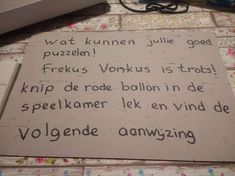 Wat kunnen jullie goed
puzzelen!
Frekus Vonkus is trots!
knip de rode ballon in de
speelkamer lek en vind de
volgende aanwijzing